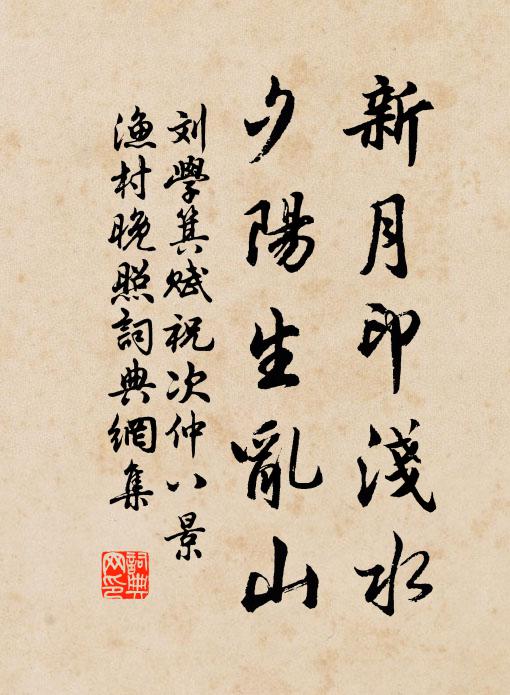 新月印淺水
夕陽生亂山
刘學箕賦祝次仲八景
漁村晚照詞典網集
詞典网印